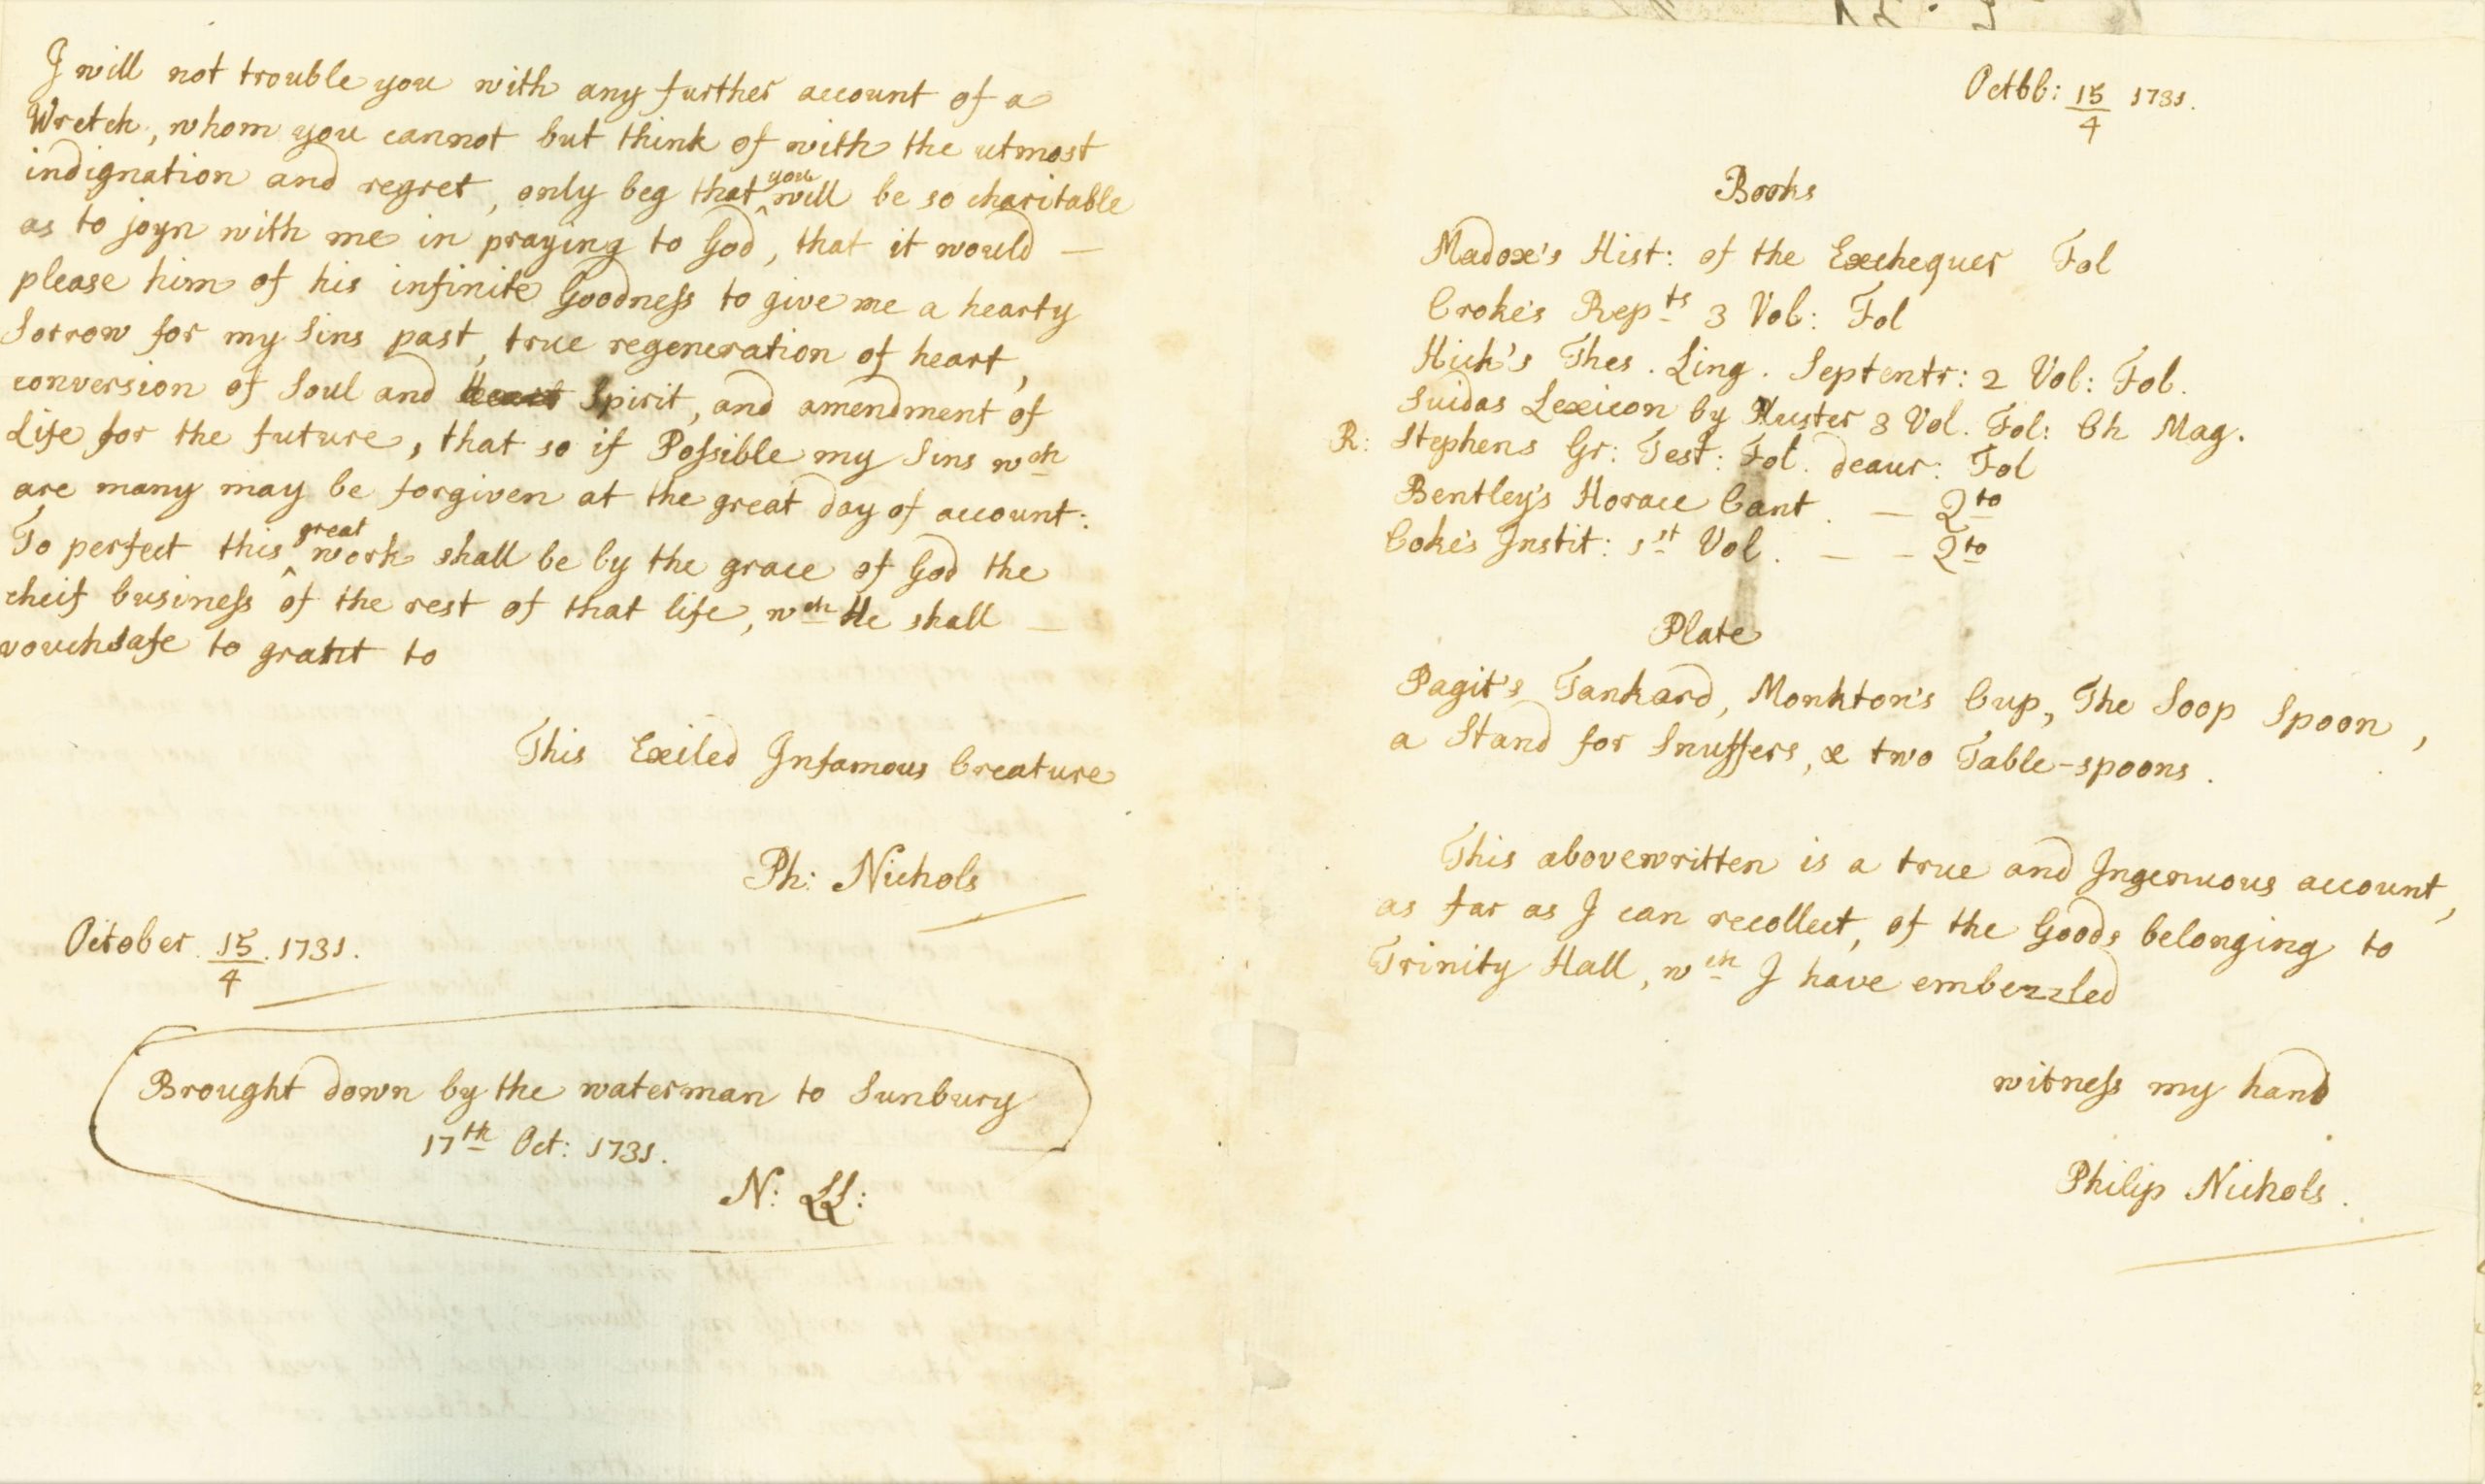 I will not trouble you with any further account of a
Wretch, whom you cannot but think of with the utmost
indignation and regret, only beg that ^you will be so charitable
as to joyn with me in praying to God, that it would —
please him of his infinite Goodness to give me a hearty
Sorrow for my Sins past, true regeneration of heart,
conversion of Soul and Spirit, and amendment of
Life for the future, that so if Possible my Sins wch
are many may be forgiven at the great day of account:
To perfect this ^great work shall be by the grace of God the
cheif business of the rest of that life, wch He shall —
vouchsafe to grant to
This Exiled Infamous Creature
Ph: Nichols
October 15/4. 1731.
Brought down by the waterman to Sunbury
17th Oct: 1731.
N: LL:
Octbb: 15/4 1731.
Books
Madox's Hist: of the Exchequer Fol
Croke's Repts 3 Vol: Fol
Hick's Thes. Ling. Septentr: 2 Vol: Fol.
Suidas Lexicon by Kuster 3 Vol. Fol: Ch Mag.
R: Stephens Gr: Test: Fol. deaur: Fol
Bentley's Horace Cant. — 2to
Coke's Instit: 1st Vol. — — 2to
Plate
Pagit's Tankard, Monkton's Cup, The Soop Spoon,
a Stand for Snuffers, & two Table-spoons.
This abovewritten is a true and Ingenuous account,
as far as I can recollect, of the Goods belonging to
Trinity Hall, wch I have embezzled
witness my hand
Philip Nichols.